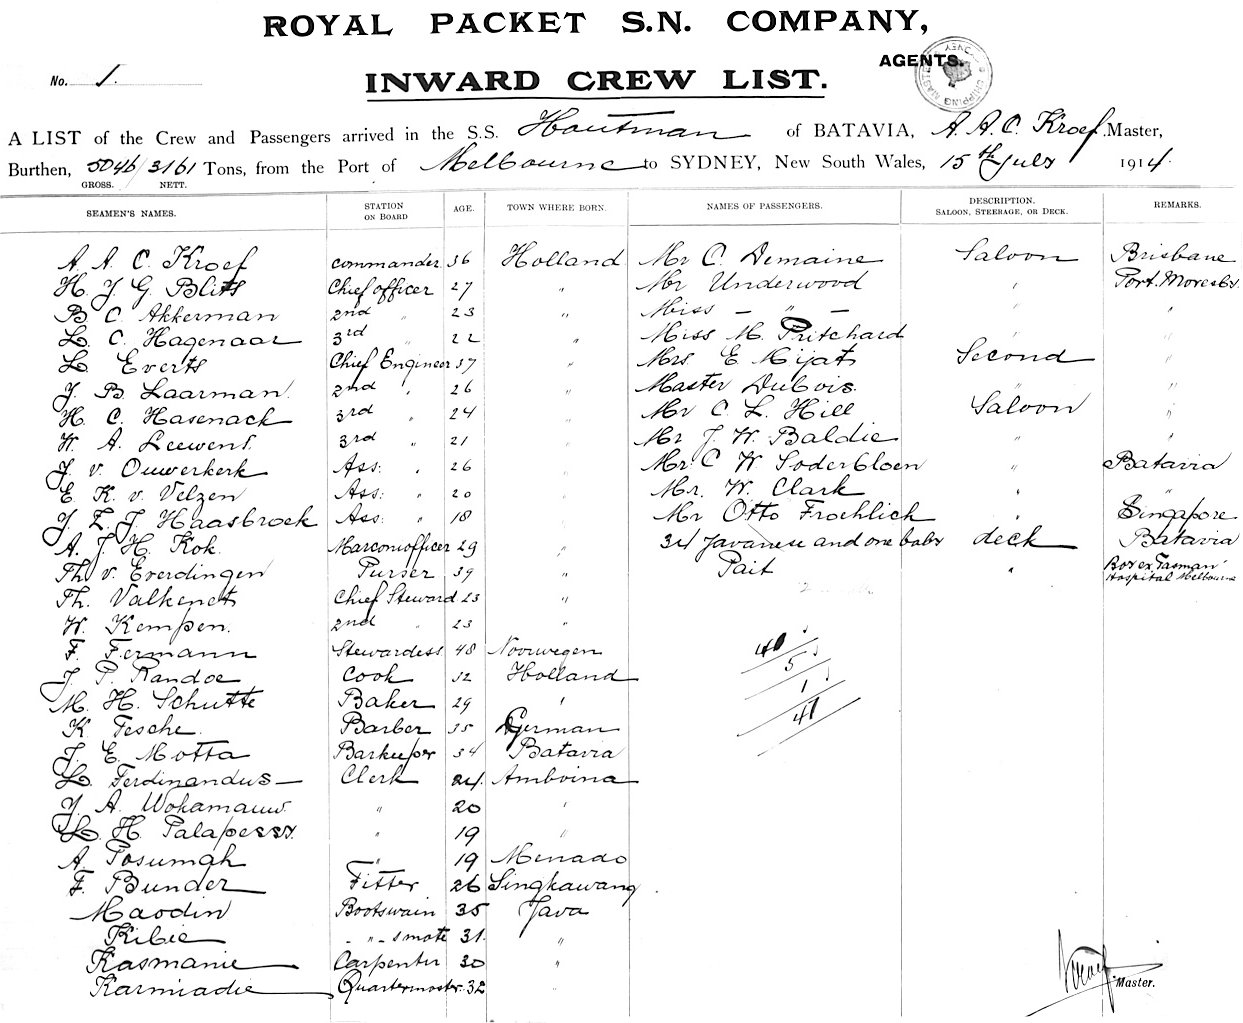 ROYAL PACKET S.N. COMPANY,
AGENTS.
No. 1.
INWARD CREW LIST.
A LIST of the Crew and Passengers arrived in the S.S. Houtman of BATAVIA, A. A. C. Kroef Master,
Burthen, 5046/3161 Tons, from the Port of Melbourne to SYDNEY, New South Wales, 15th July 1914.
GROSS. NETT.
SEAMEN'S NAMES. STATION ON BOARD AGE. TOWN WHERE BORN. NAMES OF PASSENGERS. DESCRIPTION. SALOON, STEERAGE, OR DECK. REMARKS.
A. A. C. Kroef commander 36 Holland Mr C. Demaine Saloon Brisbane
H. J. G. Blits Chief officer 27 " Mr Underwood " Port Moresby
B C. Akkerman 2nd " 23 " Miss - " - " "
L. C. Hagenaar 3rd " 22 " Miss M. Pritchard " "
L. Everts Chief Engineer 37 " Mrs. E Mijats Second "
J. B Laarman. 2nd " 26 " Master Dubois. " "
H. C. Hasenack 3rd " 24 " Mr C. L. Hill Saloon "
W. A. Leewens. 3rd " 21 " Mr J. W. Baldie " "
J. v. Ouwerkerk Ass: " 26 " Mr. C W Soderbloen " Batavia
E K. v. Velzen Ass: " 20 " Mr. W. Clark " "
J. L. J. Haasbroek Ass: " 18 " Mr Otto Froehlich " Singapore
A. J. H. Kok. Marconiofficer 29 " 34 Javanese and one baby deck Batavia
Th v. Everdingen Purser 39 " Pait " Box ex Tasman
Hospital Melbourne
Th. Valkenet Chief Steward 23 "
W. Kempen. 2nd " 23 "
F. Fermann Stewardess 48 Noorwegen 40
J. P. Randoe Cook 32 Holland 5
M. H. Schutte Baker 29 " 1
K Tesche. Barber 35 German 41
J. E. Motta Barkeeper 34 Batavia
L. Ferdinandus Clerk 24. Amboina
J. A. Wokamauw " 20 "
L. H. Palapessy. " 19 "
A. Posumah " 19 Menado
F. Bunder Fitter 26 Singkawang
Maodin Bootswain 35 Java
Kibie - " - smate 31. "
Kasmanie Carpenter 30 "
Karmiadie Quartermaster 32 "
Kroef
Master.